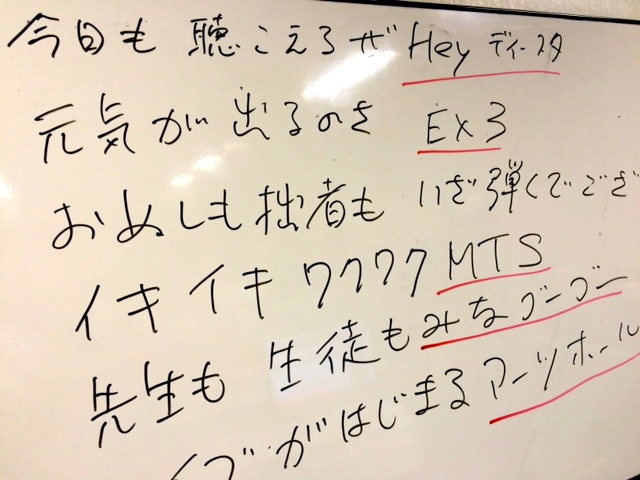 今日も 聴こえるぜ Hey ディースタ
元気が 出るのさ EX3
おぬしも拙者も いざ弾くでござ
イキイキ ワクワク MTS
先生も 生徒も みなグーグー
イブがはじまる アーツホール